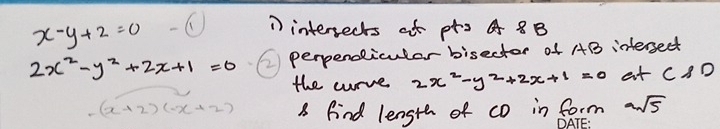 x-y+2=0 - ①
2x²-y²+2x+1=0 - ②
(x+2)(x+2)
i) intersects at pts A & B
perpendicular bisector of AB intersect
the curve 2x²-y²+2x+1=0 at C & D
& find length of CD in form a√5
DATE: